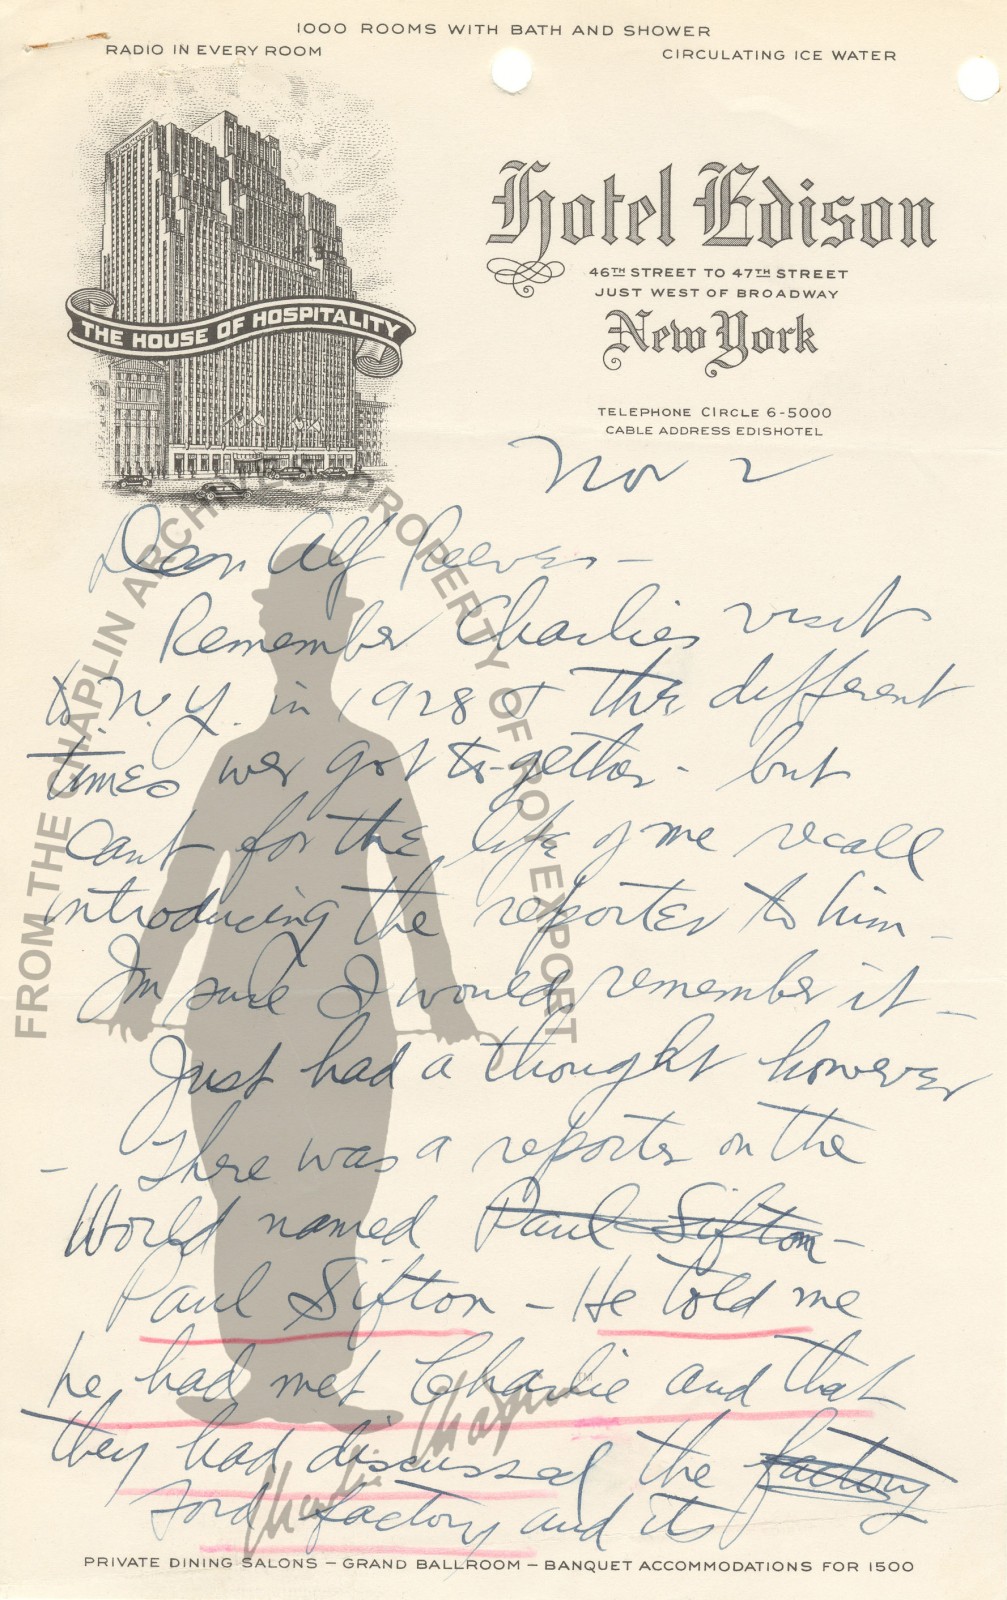 1000 ROOMS WITH BATH AND SHOWER
RADIO IN EVERY ROOM
CIRCULATING ICE WATER
THE HOUSE OF HOSPITALITY
Hotel Edison
46TH STREET TO 47TH STREET
JUST WEST OF BROADWAY
New York
TELEPHONE CIRCLE 6-5000
CABLE ADDRESS EDISHOTEL
Nov 2
Dear Alf Reeves –
Remember Charlies visit
to N.Y. in 1928 & the different
times we got to-gether - but
cant for the life of me recall
introducing the reporter to him –
Im sure I would remember it –
Just had a thought however
– There was a reporter on the
World named Paul Sifton –
Paul Sifton – He told me
he had met Charlie and that
they had discussed the factory
Ford factory and its
PRIVATE DINING SALONS – GRAND BALLROOM – BANQUET ACCOMMODATIONS FOR 1500
FROM THE CHAPLIN ARCHIVES. PROPERTY OF ROY EXPORT
Charlie Chaplin